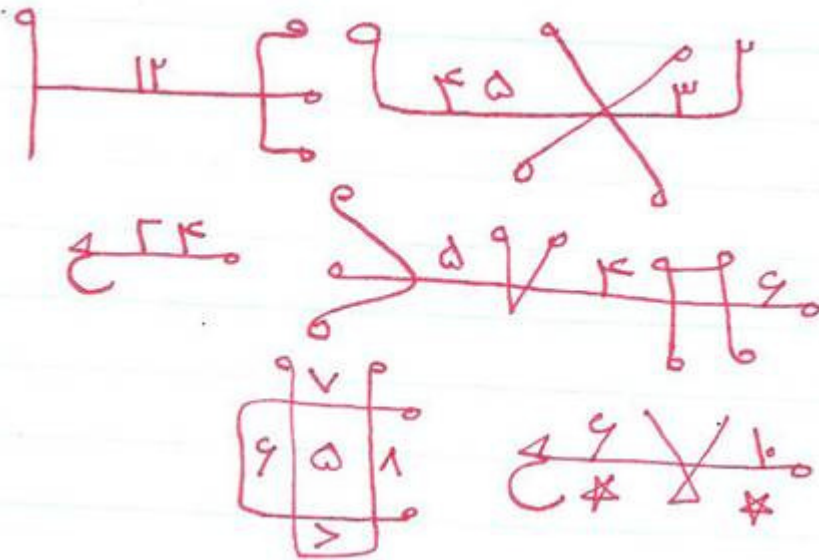 ۱۲ ۴۵ ۳
۲۴ ۵ ۴ ۶
۷
۶ ۵ ۸ ۶ ۱۰